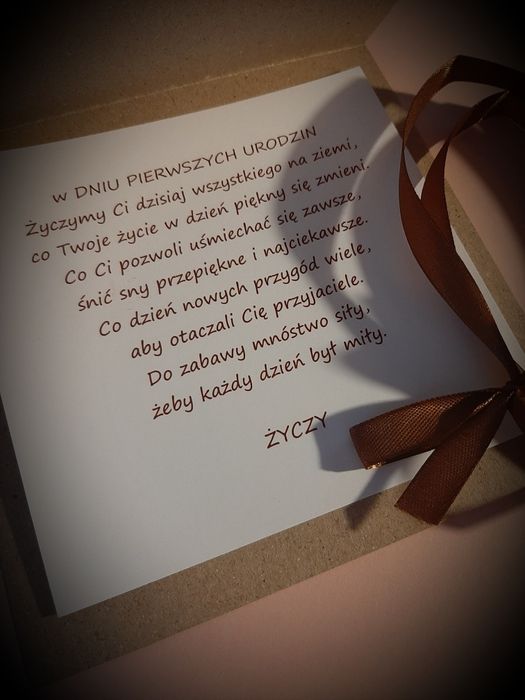 W DNIU PIERWSZYCH URODZIN
Życzymy Ci dzisiaj wszystkiego na ziemi,
co Twoje życie w dzień piękny się zmieni.
Co Ci pozwoli uśmiechać się zawsze,
śnić sny przepiękne i najciekawsze.
Co dzień nowych przygód wiele,
aby otaczali Cię przyjaciele.
Do zabawy mnóstwo siły,
żeby każdy dzień był miły.
ŻYCZY